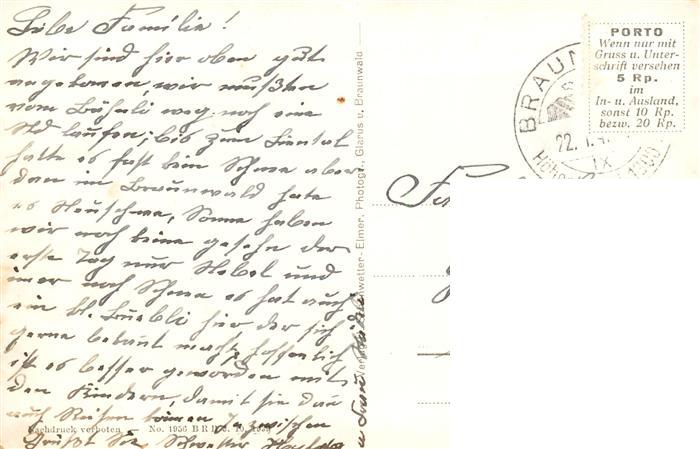 Liebe Familie!
Wir sind hier oben gut
angekomen, wir mußten
vom Bähnli weg noch eine
Std laufen; bis zum Linntal
hatte es fast kein Schnee aber
dan im Braunwald hate
es Neuschnee, Sonne haben
wir noch keine gesehn der
erste Tag nur Nebel und
imer noch Schnee es hat auch
ein kl. Buebli hier, der sich
gerne bekant macht, hoffenlich
ist es besser geworden mit
den Kindern, damit sie dan
auch Reisen könen Inzwischen
Grüßt Sie, Schwester
u Frau
Nachdruck verboten — No. 1956 BRB
Elmer, Photogr., Glarus u. Braunwald
BRAUN
22.
PORTO
Wenn nur mit
Gruss u. Unter-
schrift versehen
5 Rp.
im
In- u. Ausland,
sonst 10 Rp.
bezw. 20 Rp.